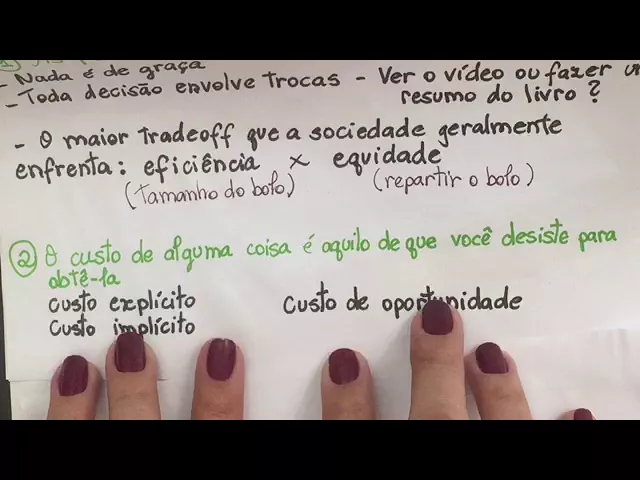 - Nada é de graça
- Toda decisão envolve trocas - Ver o vídeo ou fazer
resumo do livro?
- O maior tradeoff que a sociedade geralmente
enfrenta: eficiência x equidade
(tamanho do bolo) (repartir o bolo)
2 O custo de alguma coisa é aquilo de que você desiste para
obtê-la
custo explícito custo de oportunidade
custo implícito